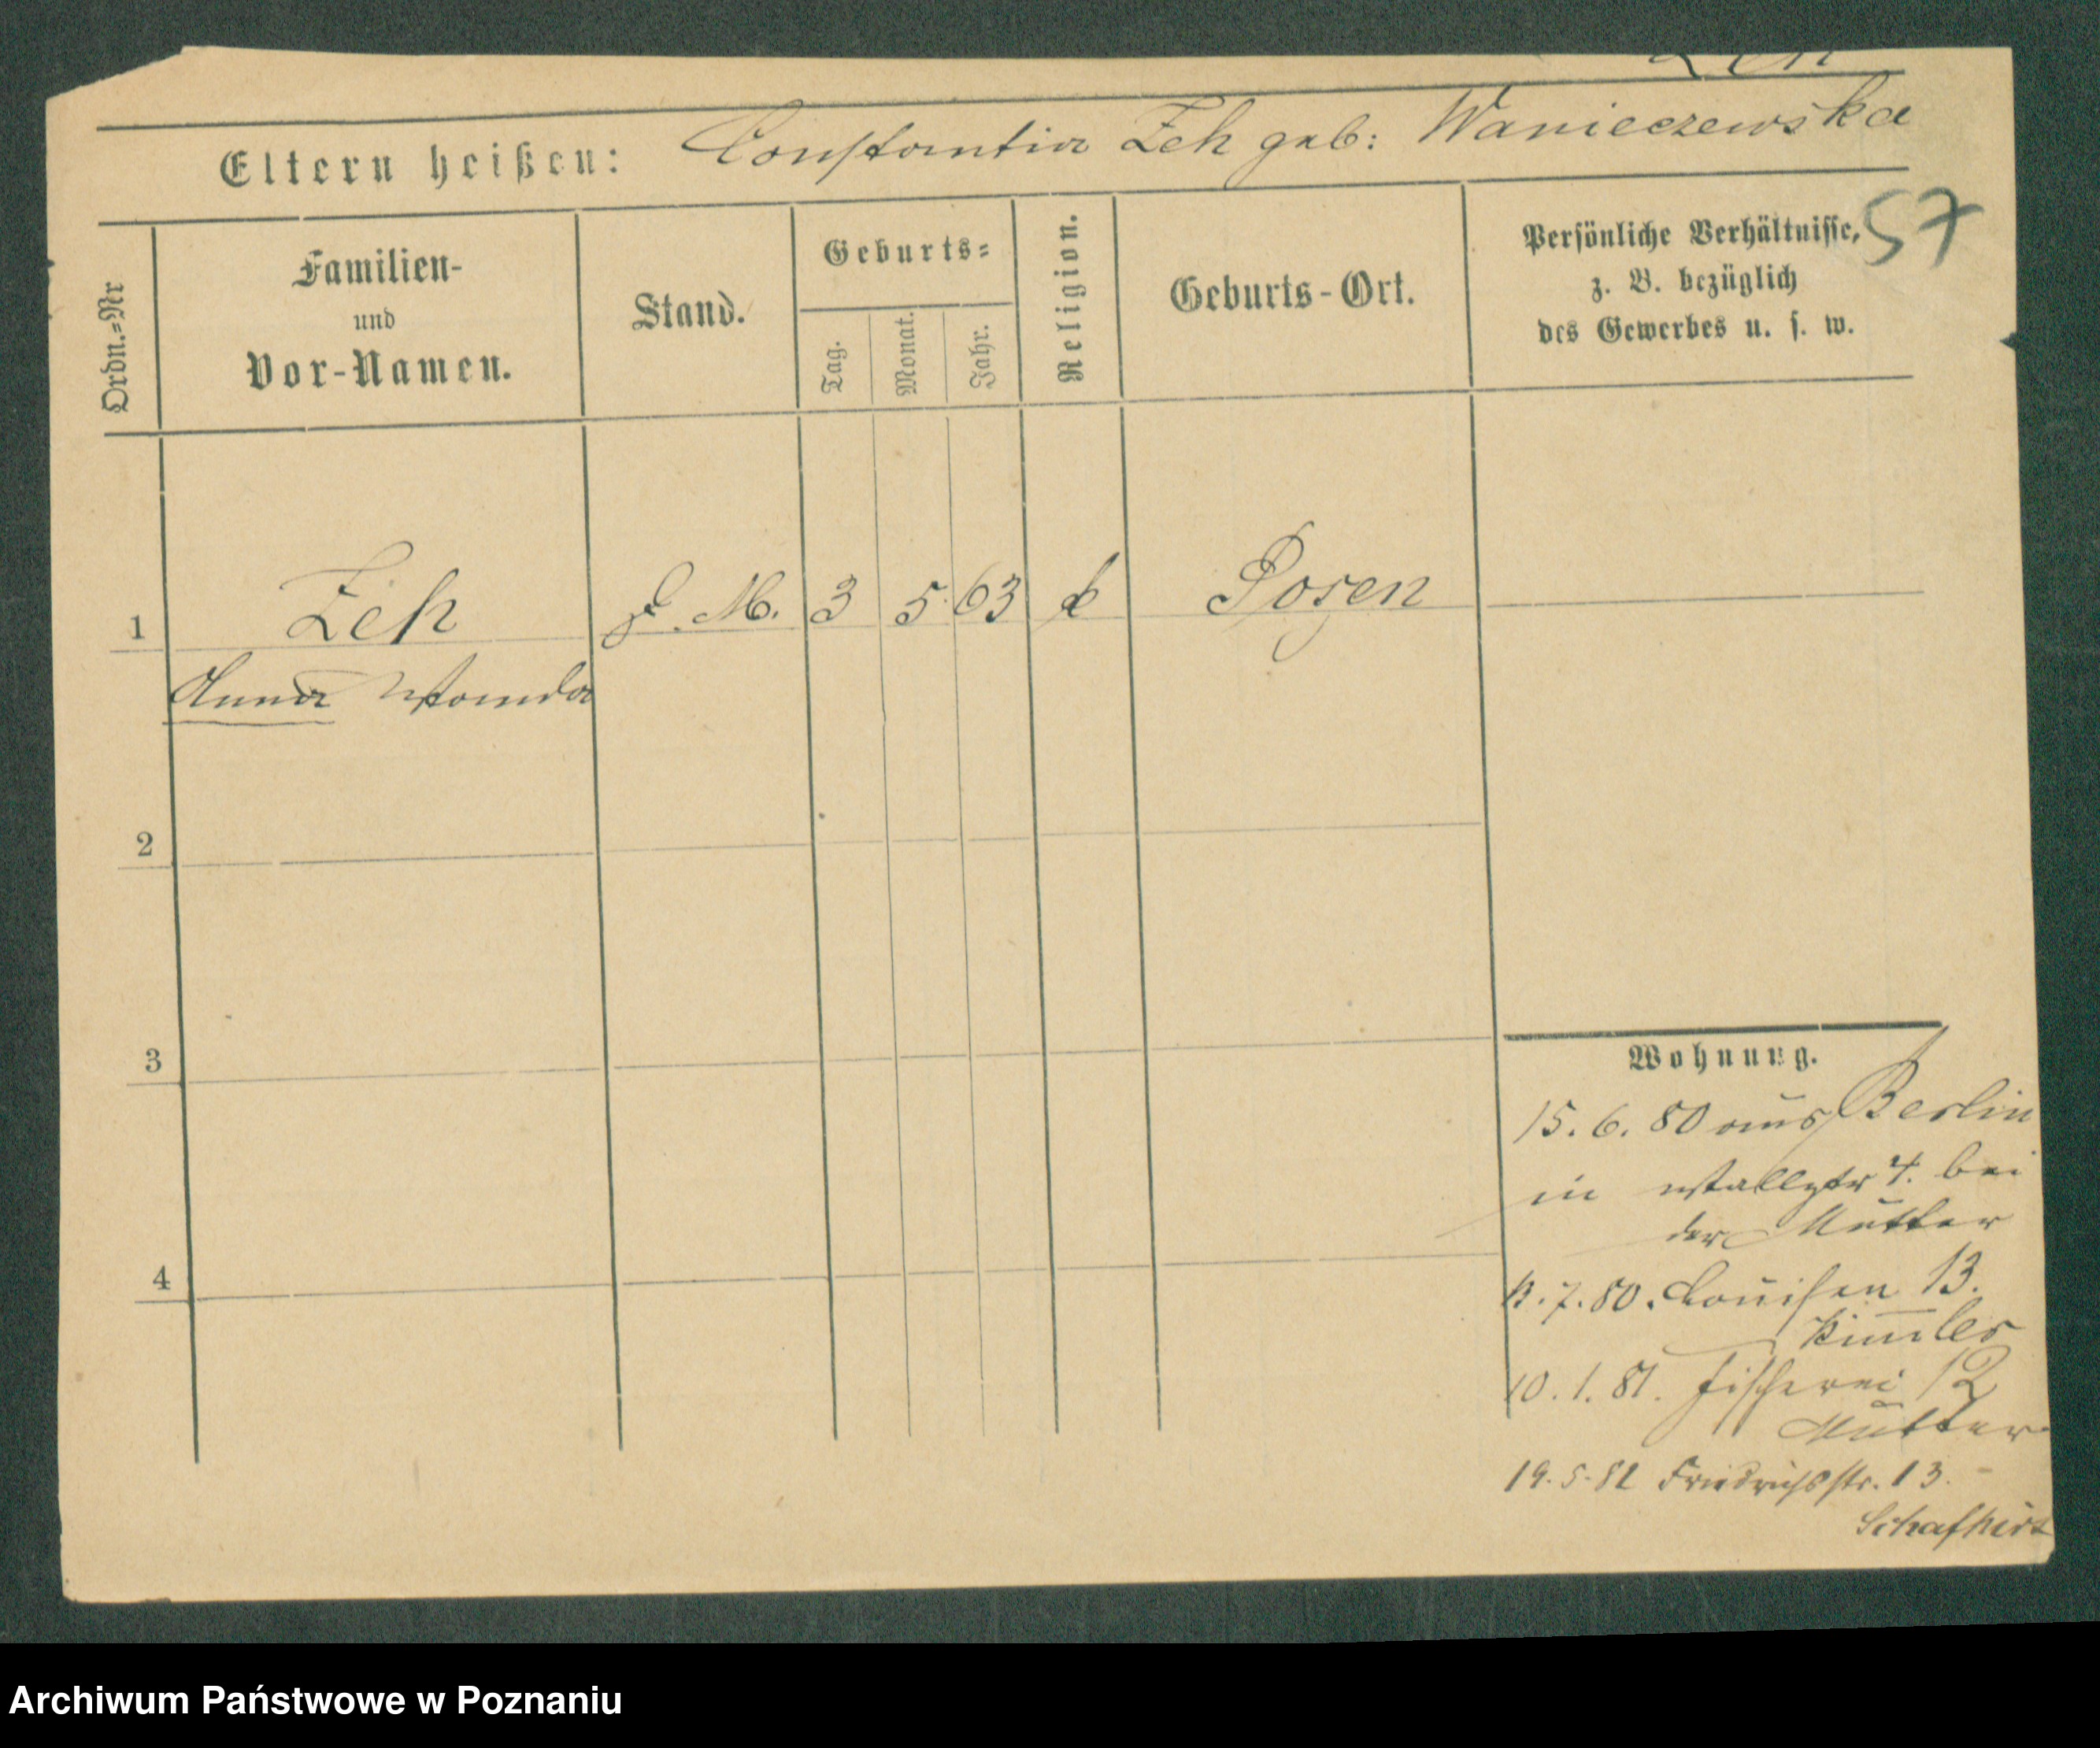 Zeh
Eltern heißen: Constantia Zeh geb: Wanieczewska
57
Ordn.=Nr
Familien-
und
Vor-Namen.
Stand.
Geburts=
Tag.
Monat.
Jahr.
Religion.
Geburts-Ort.
Persönliche Verhältnisse,
z. B. bezüglich
des Gewerbes u. s. w.
1 Zeh D. M. 3 5. 63 k Posen
Anna Wanda
2
3
4
Wohnung.
15. 6. 80 aus Berlin
in Wallstr 4. bei
der Mutter
13. 7. 80. Louisen 13.
10. 1. 81. Fischerei 12
Mutter
19. 5. 82 Friedrichsstr. 13.
Schafhirt
Archiwum Państwowe w Poznaniu